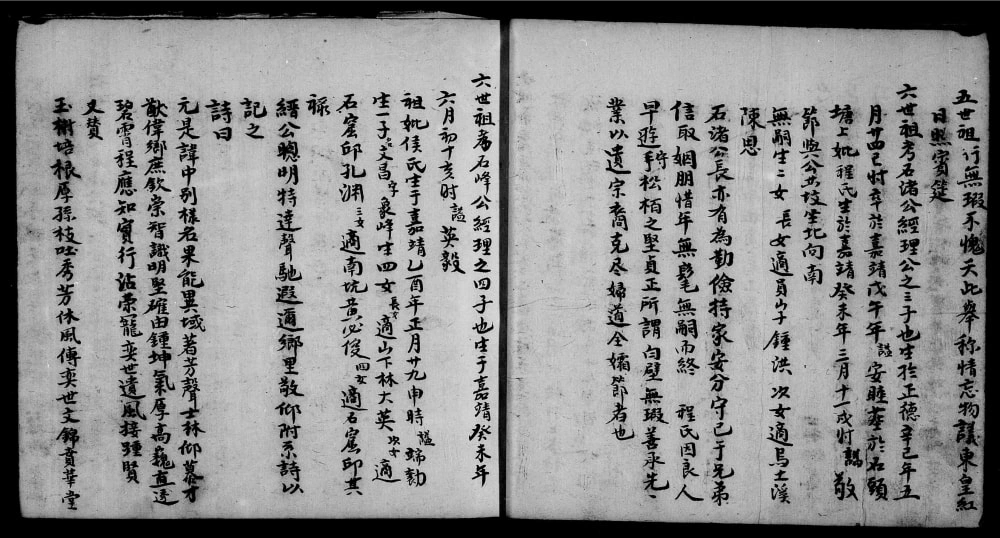 五世祖行無瑕不愧天此舉称情忘物議東皇紅
日照賓筵
六世祖考石渚公經理公之三子也生於正德辛巳年五
月廿四己时卒於嘉靖戊午年諡安睦塟於石頭
塘上妣程氏生於嘉靖癸未年三月十一戌时諡敬
節與公共坟坐北向南
無嗣生二女長女適員山子鍾洪次女適烏土溪
陳恩
石渚公長亦有為勤儉持家安分守己于兄弟
信取姻朋惜年無髦無嗣而終 程氏因良人
早逰守松栢之堅貞正所謂白璧無瑕善承先
業以遺宗裔克尽婦道全孀節者也
六世祖考石峰公經理之四子也生于嘉靖癸未年
六月初十亥时諡英毅
祖妣侯氏生于嘉靖乙酉年正月廿九申時諡端勤
生一子名文昌字象峰生四女長女適山下林大英次女適
石窟邱孔渊三女適南坑黄必俊四女適石窟邱其
禄
縉公聰明特達聲馳遐邇鄉里敬仰附系詩以
記之
詩曰
元是諱中别樣名果能異域著芳聲士林仰慕才
猷偉鄉庶欽崇智識明堅確由鍾坤氣厚高巍直逼
碧霄程應知實行沾荣寵奕世遺風接踵賢
又賛
玉樹培根厚孫枝吐秀芳休風傳奕世文錦賁華堂